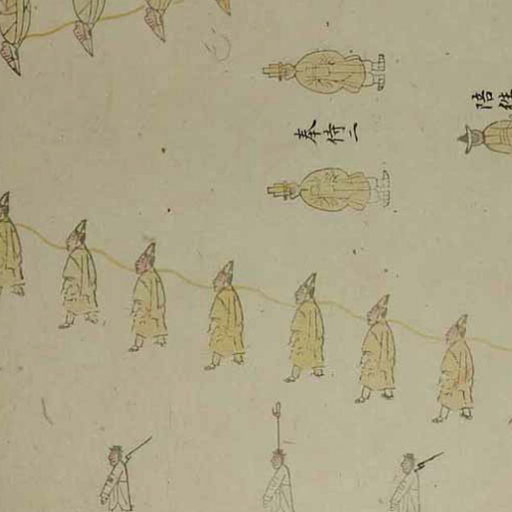 奉侍二
陪